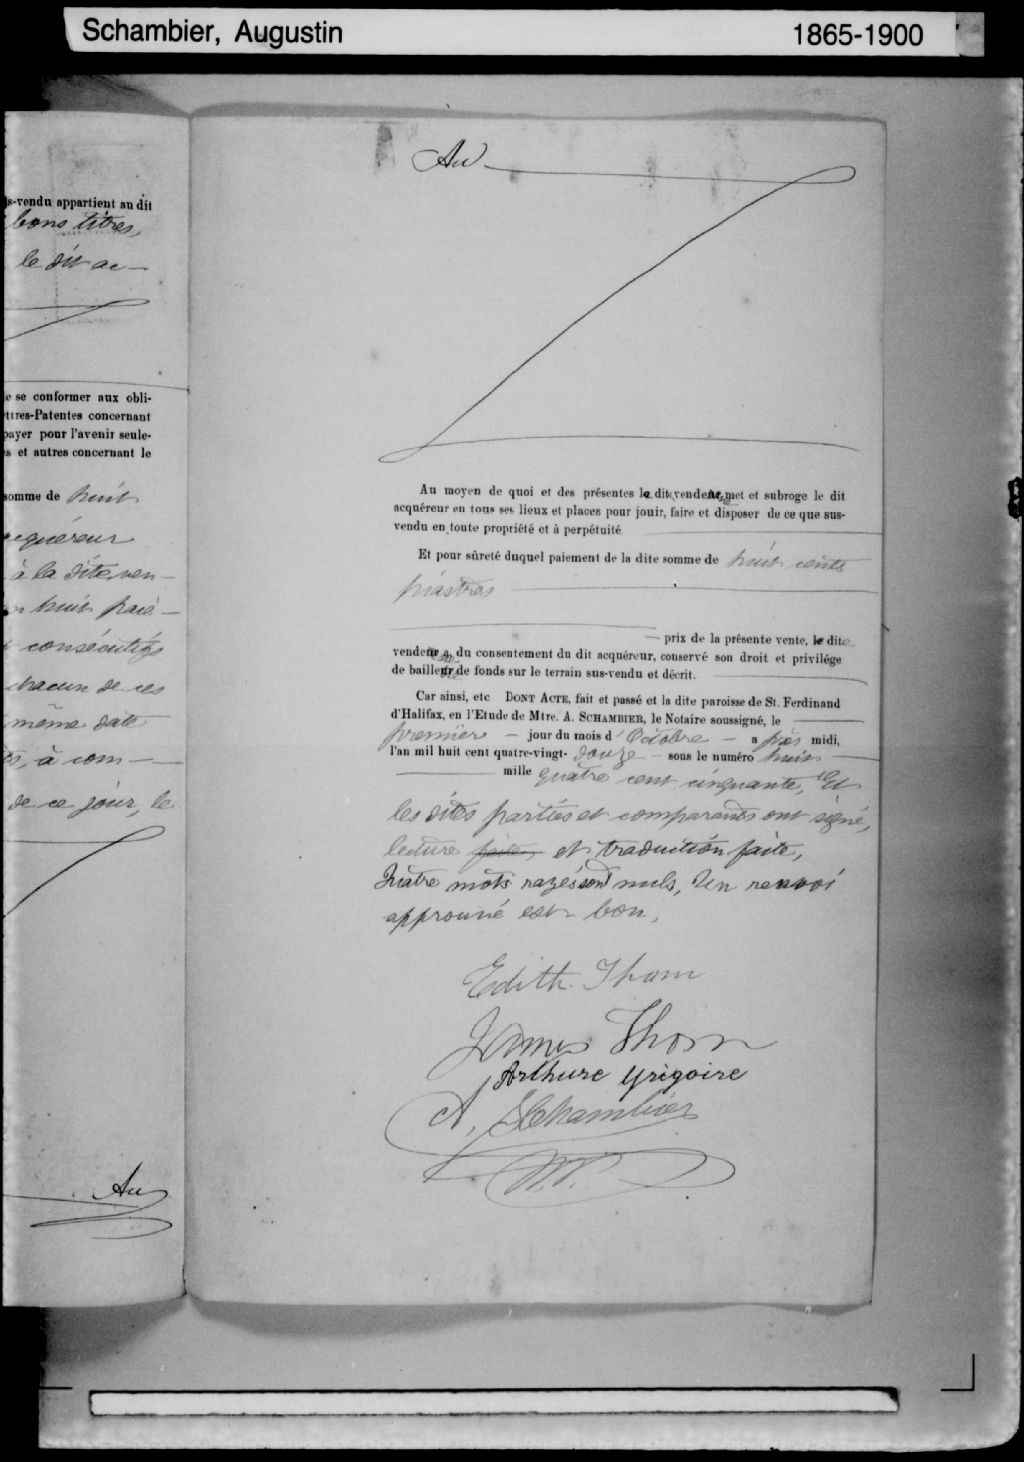 Schambier, Augustin 1865-1900
s-vendu appartient au dit
bons titres,
le dit ac-
e se conformer aux obli-
ttres-Patentes concernant
payer pour l'avenir seule-
s et autres concernant le
somme de huit
acquéreur
à la dite ven-
en huit paie-
consécutifs
chacun de ces
même date
à com-
de ce jour, le
Au
Au
Au moyen de quoi et des présentes la dite venderesse met et subroge le dit
acquéreur en tous ses lieux et places pour jouir, faire et disposer de ce que sus-
vendu en toute propriété et à perpétuité
Et pour sûreté duquel paiement de la dite somme de huit cents
piastres
prix de la présente vente, la dite
venderesse a, du consentement du dit acquéreur, conservé son droit et privilége
de bailleresse de fonds sur le terrain sus-vendu et décrit.
Car ainsi, etc DONT ACTE, fait et passé et la dite paroisse de St. Ferdinand
d'Halifax, en l'Etude de Mtre. A. SCHAMBIER, le Notaire soussigné, le
premier - jour du mois d'Octobre - a près midi,
l'an mil huit cent quatre-vingt-douze - sous le numéro huit
mille quatre cent cinquante, Et
les dites parties et comparents ont signé,
lecture faite, et traduction faite,
Quatre mots razés sont nuls, Un renvoi
approuvé est bon.
Edith Thom
James Thom
Arthure Grégoire
A. Schambier
N.P.